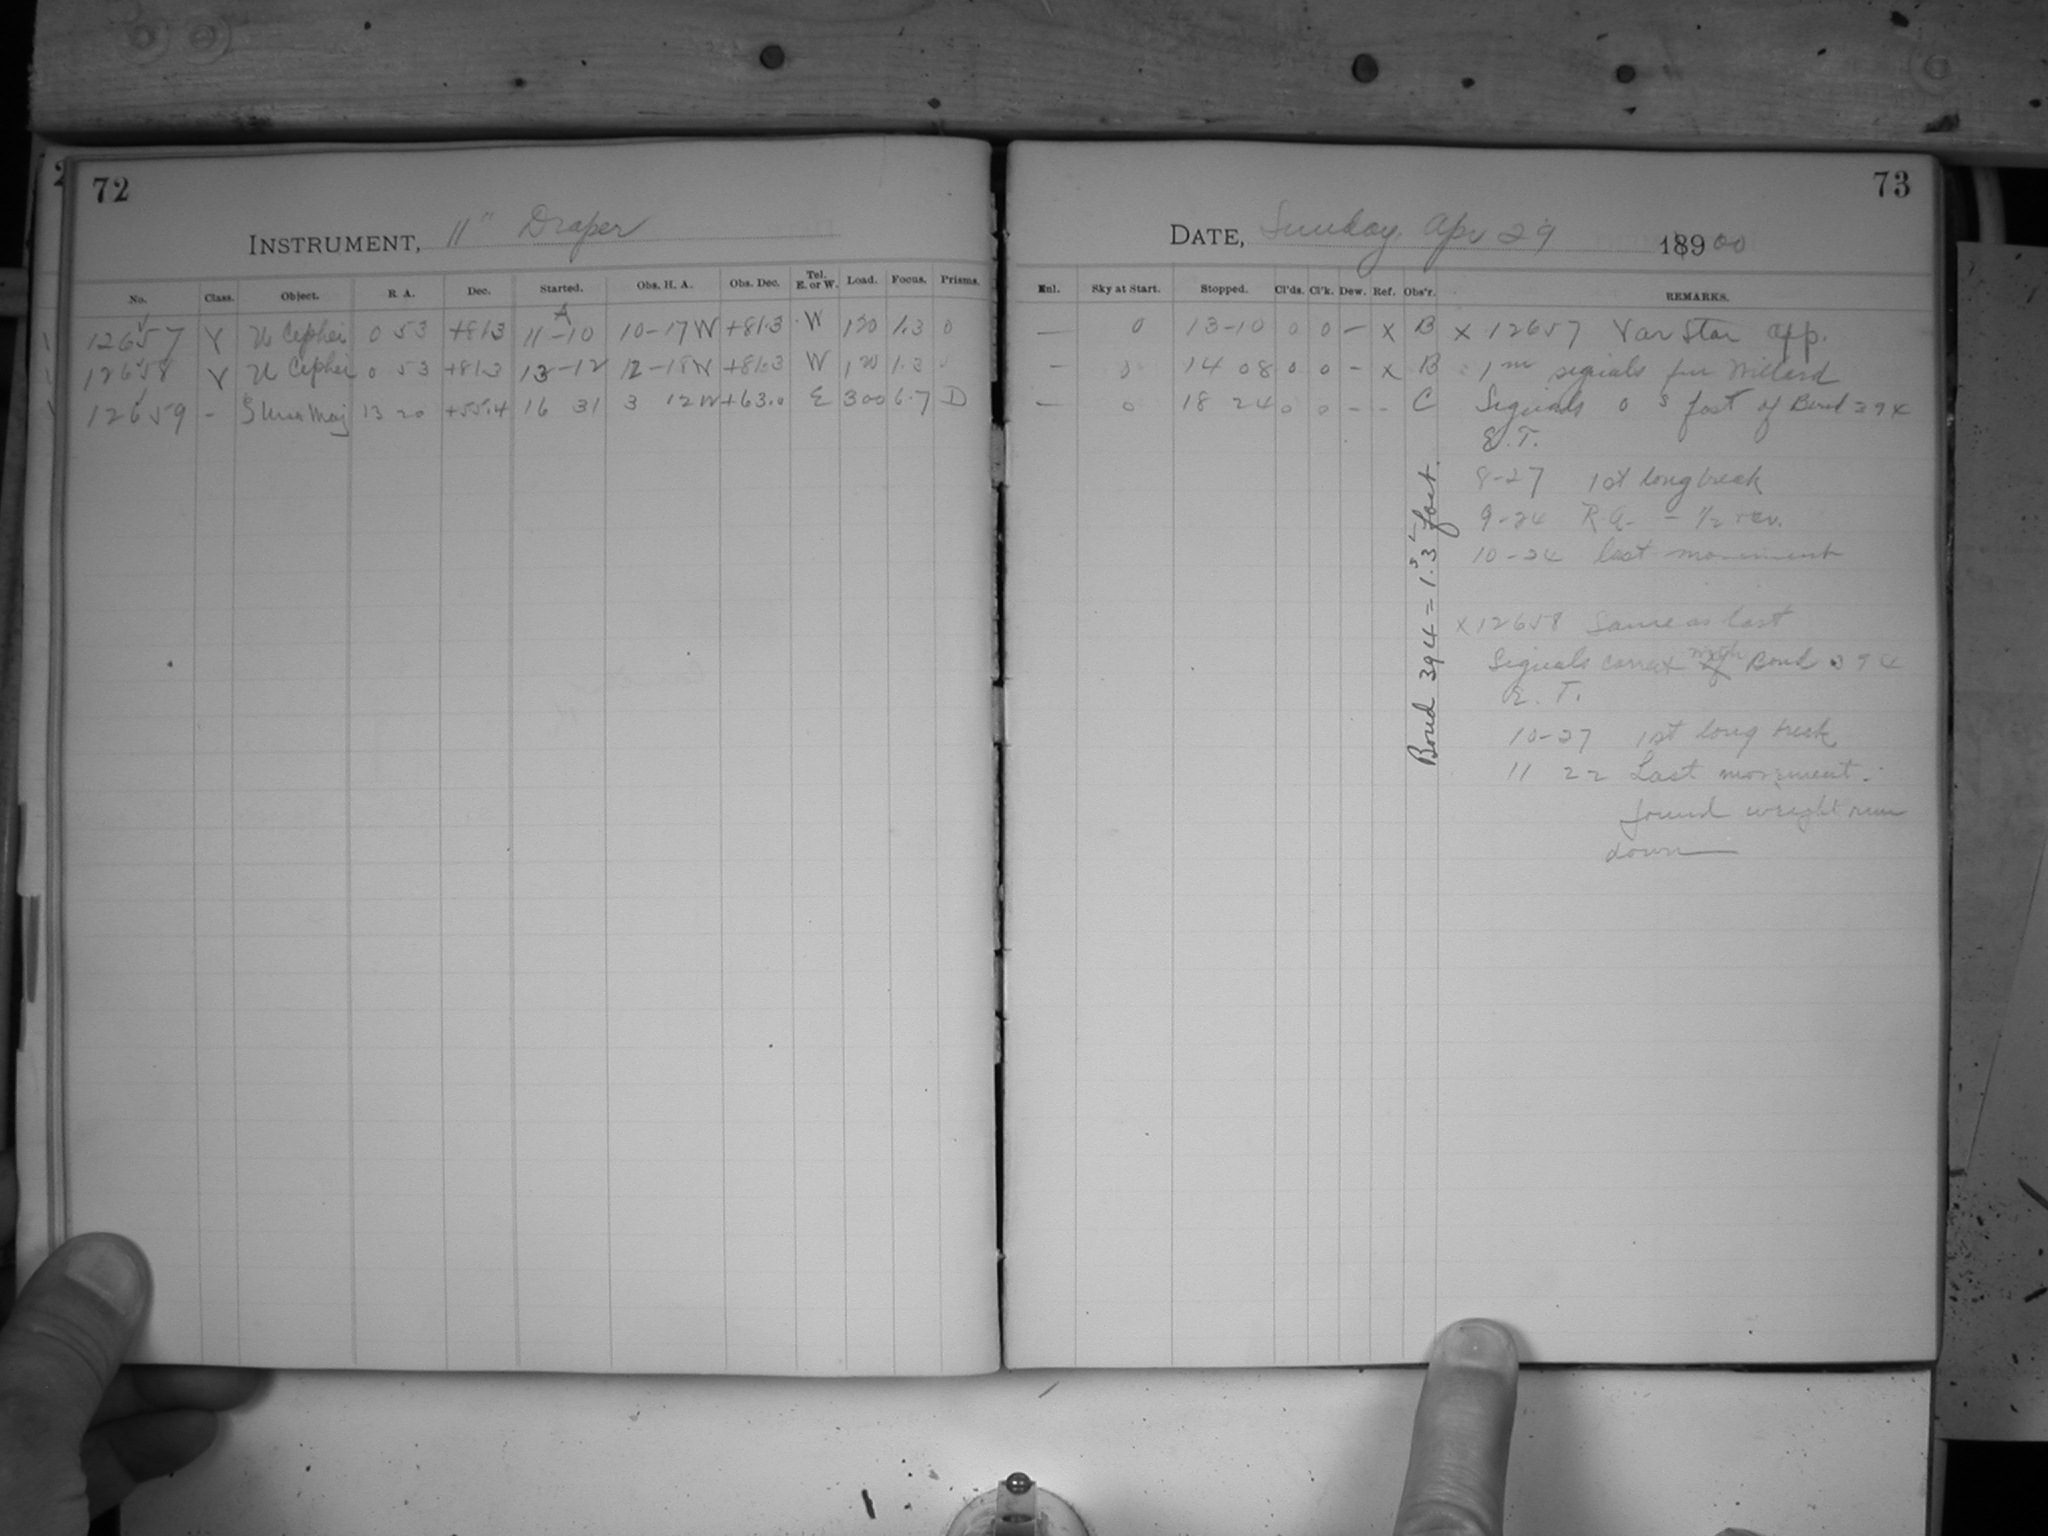 72
INSTRUMENT, 11" Draper
No. Class. Object. R. A. Dec. Started. Obs. H. A. Obs. Dec. Tel. E. or W. Load. Focus. Prisms.
12657 Y U Cephei 0 53 +81.3 11-10 10-17 W +81.3 W 120 1.3 0
12658 Y U Cephei 0 53 +81.3 13-12 12-18 W +81.3 W 120 1.3
12659 - Ursa Maj 13 20 +55.4 16 31 3 12 W +63.0 E 300 6.7 D
73
DATE, Sunday Apr 29 189 00
Enl. Sky at Start. Stopped. Cl'ds. Cl'k. Dew. Ref. Obs'r. REMARKS.
— 0 13-10 0 0 - X B X 12657 Var Star app.
- 0 14 08 0 0 - X B 1m signals from Willard
— 0 18 24 0 0 - - C Signals 0 s fast of Bond 394
E.T.
8-27 1st long break
9-24 R.A. - 1/2 rev.
10-24 last movement
X 12658 Same as last
Signals correct with Bond 394
E. T.
10-27 1st long break
11 22 Last movement.
found weight run
down
Bond 394 = 1.3 s fast.